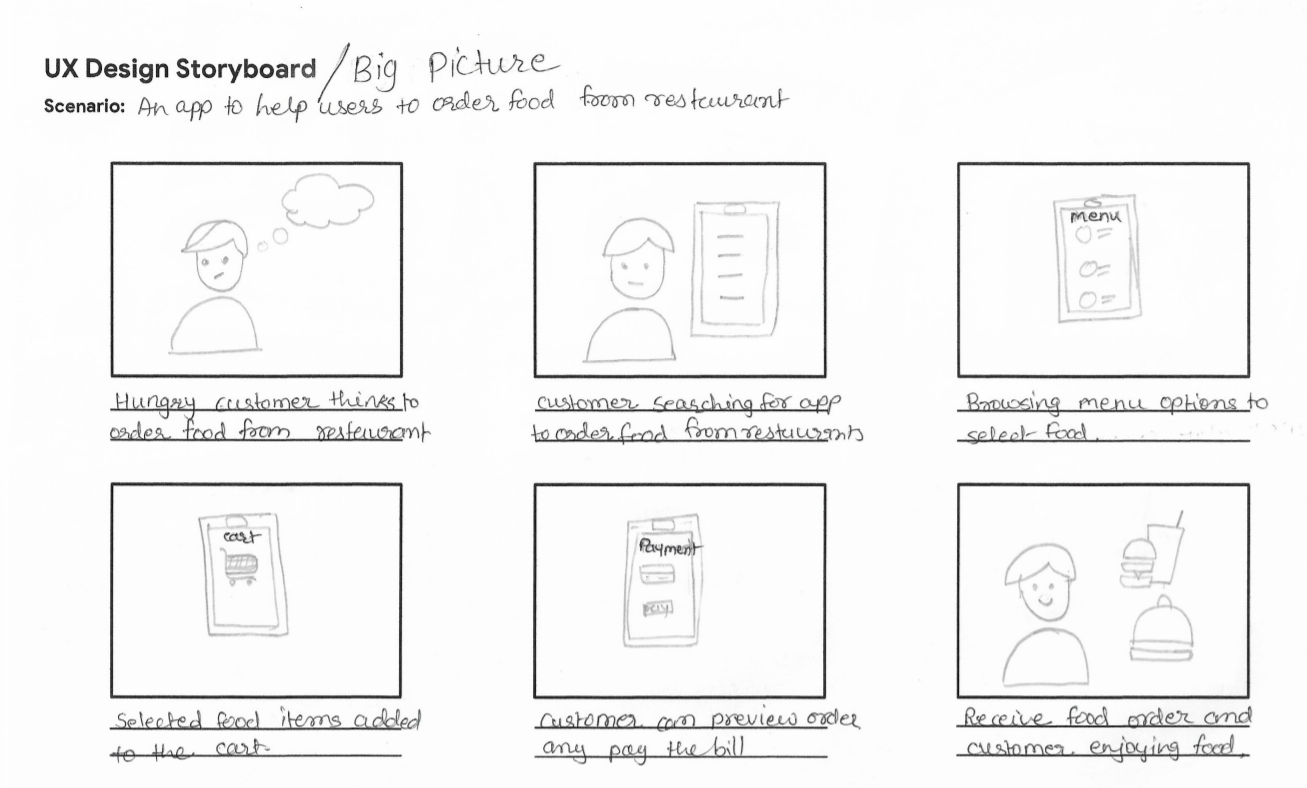 UX Design Storyboard / Big Picture
Scenario: An app to help users to order food from restaurant
menu
Hungry customer thinks to
order food from restaurant
customer searching for app
to order food from restaurants
Browsing menu options to
select food.
cart
Payment
pay
Selected food items added
to the cart
customer can preview order
any pay the bill
Receive food order and
customer enjoying food.